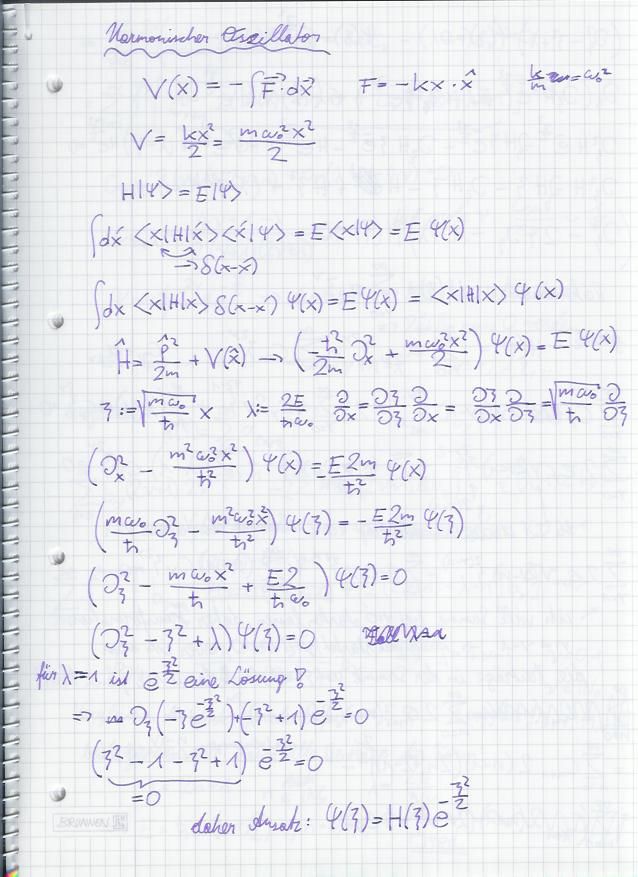 Harmonischer Oszillator
V(x) = -∫F⃗·dx⃗   F = -kx · x̂   k/m = ω₀²
V = kx²/2 = mω₀²x²/2
H|Ψ> = E|Ψ>
∫dx́ <x|H|x́><x́|Ψ> = E<x|Ψ> = E Ψ(x)
→ δ(x-x́)
∫dx <x|H|x> δ(x-x́) Ψ(x) = E Ψ(x) = <x|H|x> Ψ(x)
Ĥ = p̂²/2m + V(x̂) → (-ħ²/2m ∂ₓ² + mω₀²x²/2) Ψ(x) = E Ψ(x)
ξ := √(mω₀/ħ) x   λ := 2E/ħω₀   ∂/∂x = ∂ξ/∂ξ ∂/∂x = ∂ξ/∂x ∂/∂ξ = √(mω₀/ħ) ∂/∂ξ
(∂ₓ² - m²ω₀²x²/ħ²) Ψ(x) = -E2m/ħ² Ψ(x)
(mω₀/ħ ∂ξ² - m²ω₀²x²/ħ²) Ψ(ξ) = -E2m/ħ² Ψ(ξ)
(∂ξ² - mω₀x²/ħ + E2/ħω₀) Ψ(ξ) = 0
(∂ξ² - ξ² + λ) Ψ(ξ) = 0
für λ=1 ist e^(-ξ²/2) eine Lösung!
=> ∂ξ(-ξe^(-ξ²/2)) + (-ξ²+1) e^(-ξ²/2) = 0
(ξ² - 1 - ξ² + 1) e^(-ξ²/2) = 0
=0
daher Ansatz: Ψ(ξ) = H(ξ) e^(-ξ²/2)
BRUNNEN